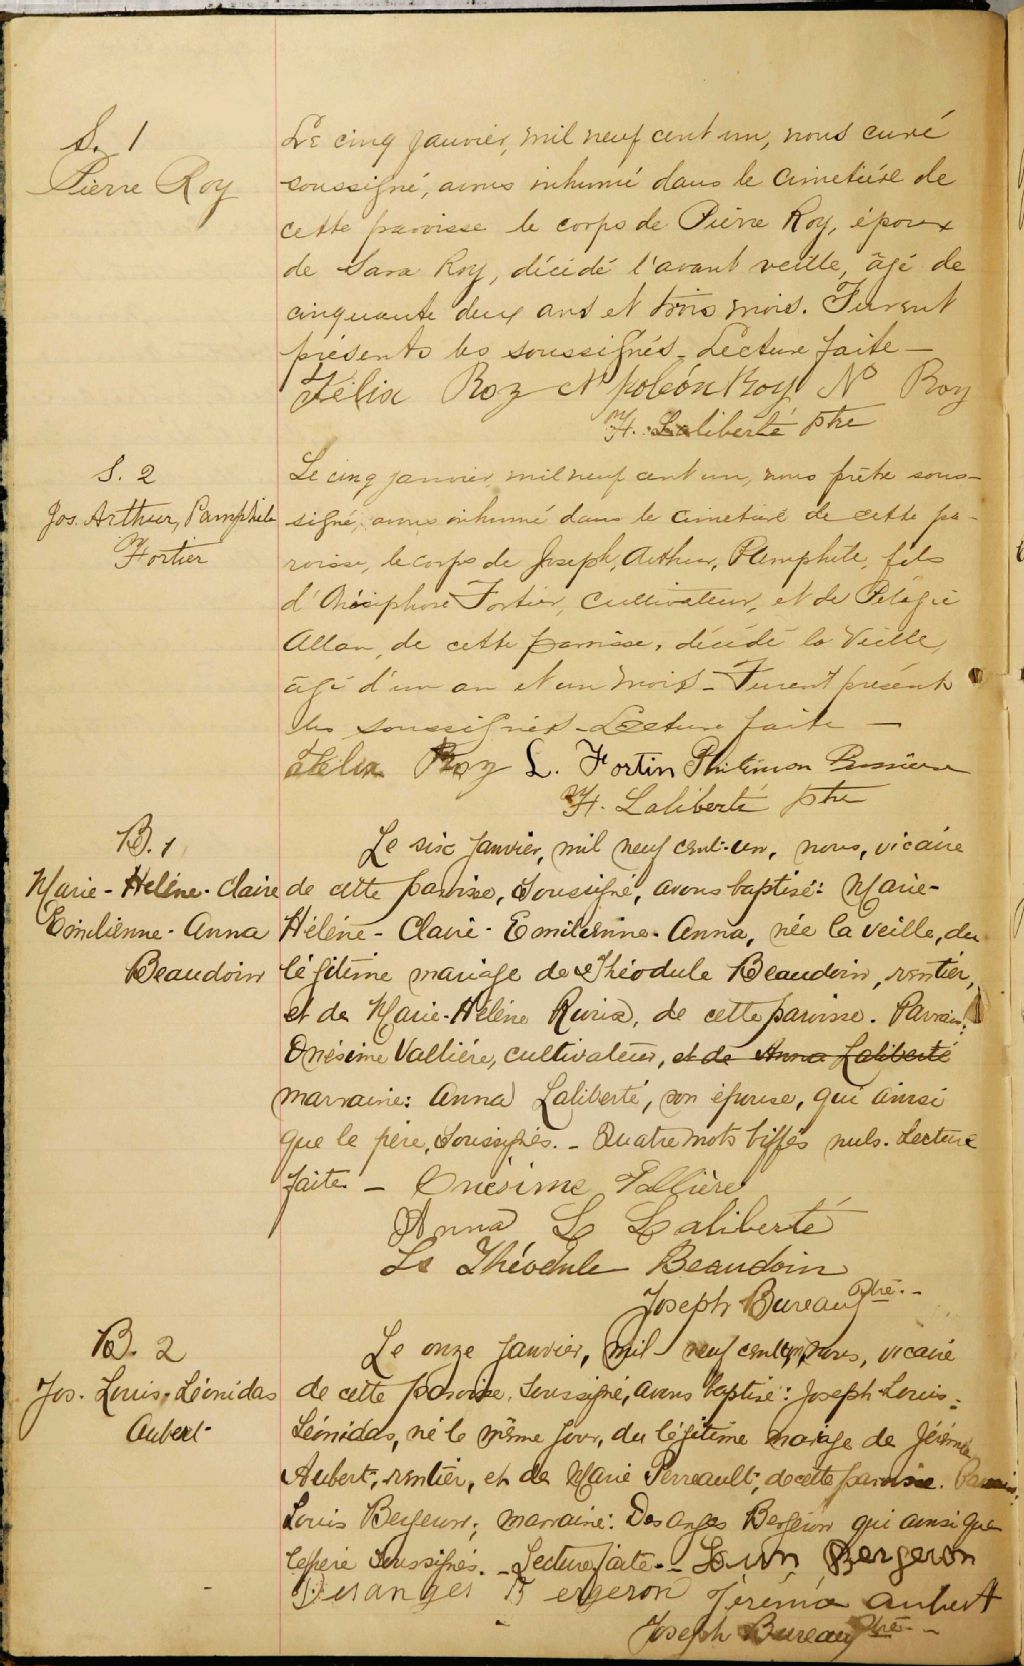 S. 1
Pierre Roy
Le cinq janvier, mil neuf cent un, nous curé
soussigné, avons inhumé dans le cimetière de
cette paroisse le corps de Pierre Roy, époux
de Sara Roy, décédé l'avant veille, âgé de
cinquante deux ans et trois mois. Furent
présents les soussignés - Lecture faite -
Félix Roy Napoléon Roy N° Roy
H. Laliberté ptre
S. 2
Jos. Arthur, Pamphile
Fortier
Le cinq janvier, mil neuf cent un, nous prêtre sous-
signé, avons inhumé dans le cimetière de cette pa-
roisse, le corps de Joseph, Arthur, Pamphile, fils
d'Onésiphore Fortier, cultivateur, et de Pélagie
Allan, de cette paroisse, décédé la veille,
âgé d'un an et un mois - Furent présents
les soussignés - Lecture faite -
Félix Roy L. Fortin Philémon Bussière
H. Laliberté ptre
B. 1
Marie - Hélène - Claire
Emilienne - Anna
Beaudoin
Le six janvier, mil neuf cent-un, nous, vicaire
de cette paroisse, soussigné, avons baptisé: Marie-
Hélène - Claire - Emilienne - Anna, née la veille, du
légitime mariage de Théodule Beaudoin, rentier,
et de Marie-Hélène , de cette paroisse. Parrain:
Onésime Vallière, cultivateur, et de Anna Laliberté
marraine: Anna Laliberté, son épouse, qui ainsi
que le père, soussignés. - Quatre mots biffés nuls. Lecture
faite. - Onésime Vallière
Anna L Laliberté
Ls Théodule Beaudoin
Joseph Bureau Ptre. -
B. 2
Jos. Louis. Léonidas
Aubert
Le onze janvier, mil neuf cent un, nous, vicaire
de cette paroisse, soussigné, avons baptisé: Joseph-Louis-
Léonidas, né le même jour, du légitime mariage de Jérémie
Aubert, rentier, et de Marie Perreault, de cette paroisse. Parrain:
Louis Bergeron; marraine: Desanges Bergeron qui ainsi que
le père soussignés. - Lecture faite. - Louis Bergeron
Desanges Bergeron Jérémie Aubert
Joseph Bureau Ptre - -